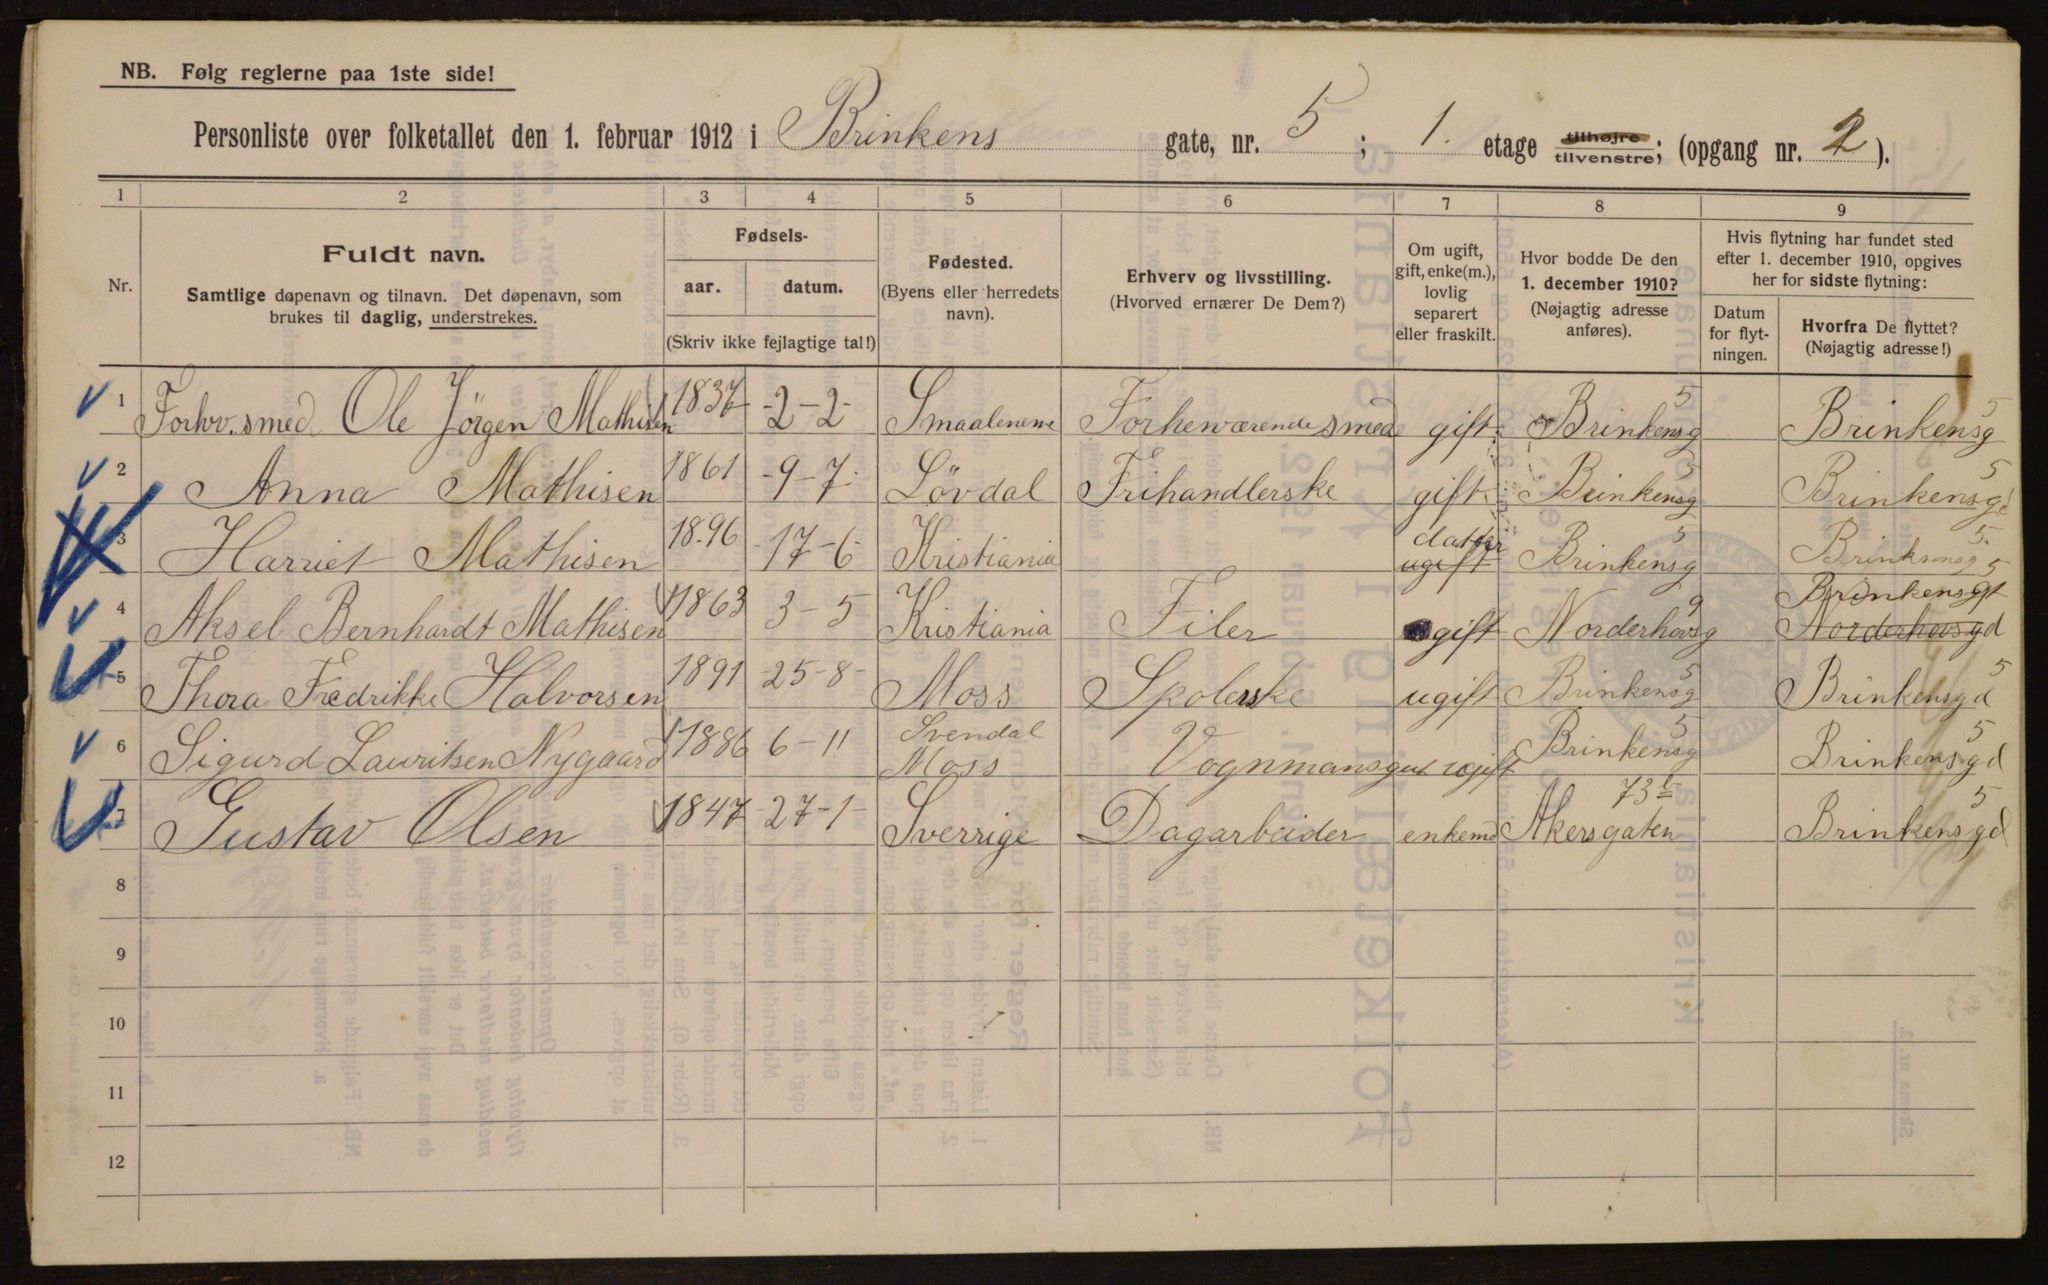 NB. Følg reglerne paa 1ste side!
Personliste over folketallet den 1. februar 1912 i Brinkens gate, nr. 5 ; 1. etage tilhøjre tilvenstre; (opgang nr. 2 ).
1 2 3 4 5 6 7 8 9
Nr.
Fuldt navn.
Samtlige døpenavn og tilnavn. Det døpenavn, som
brukes til daglig, understrekes.
Fødsels-
aar. datum.
(Skriv ikke fejlagtige tal!)
Fødested.
(Byens eller herredets
navn).
Erhverv og livsstilling.
(Hvorved ernærer De Dem?)
Om ugift,
gift, enke(m.),
lovlig
separert
eller fraskilt.
Hvor bodde De den
1. december 1910?
(Nøjagtig adresse
anføres).
Hvis flytning har fundet sted
efter 1. december 1910, opgives
her for sidste flytning:
Datum
for flyt-
ningen.
Hvorfra De flyttet?
(Nøjagtig adresse!)
1 Forhv. smed Ole Jörgen Mathisen 1837 -2-2- Smaalenene Forheværende smed gift Brinkensg 5 Brinkensg 5
2 Anna Mathisen 1861 -9-7- Lövdal Frihandlerske gift Brinkensg 5 Brinkensgd 5
3 Harriet Mathisen 1896 -17-6- Kristiania datter ugift Brinkensg 5 Brinkensg 5
4 Aksel Bernhardt Mathisen 1863 3-5 Kristiania Filer gift Norderhovsg 9 Brinkensgt 5 Norderhovsgd
5 Thora Fredrikke Halvorsen 1891 -25-8- Moss Skolerske ugift Brinkensg 5 Brinkensgd 5
6 Sigurd Lauritsen Nygaard 1886 6-11 Svendal Moss Vognmansgut ugift Brinkensg 5 Brinkensgd 5
7 Gustav Olsen 1847 -27-1- Sverrige Dagarbeider enkemd Akersgaten 73b Brinkensgd 5
8
9
10
11
12